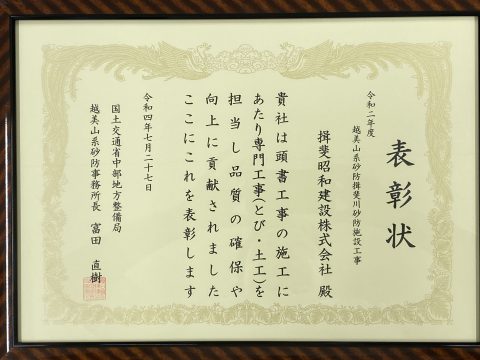 表彰状
令和二年度
越美山系砂防揖斐川砂防施設工事
揖斐昭和建設株式会社 殿
貴社は頭書工事の施工に
あたり専門工事(とび・土工)を
担当し品質の確保や
向上に貢献されました
ここにこれを表彰します
令和四年七月二十七日
国土交通省中部地方整備局
越美山系砂防事務所長 富田 直樹